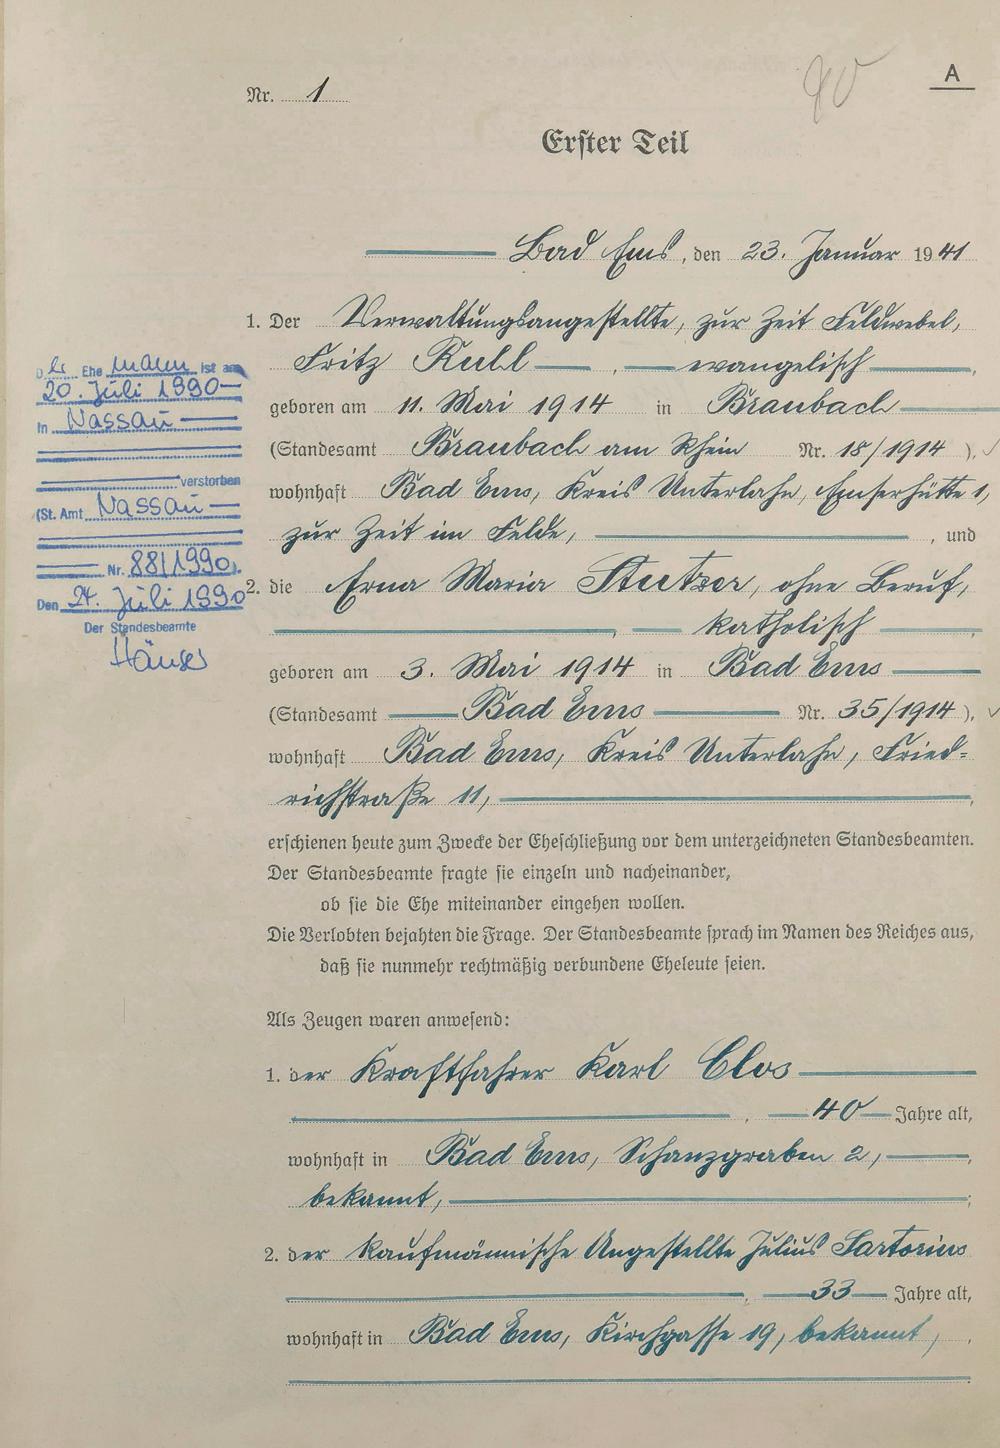 A
Nr. 1
Erster Teil
Bad Ems, den 23. Januar 1941
1. Der Verwaltungsangestellte, zur Zeit Feldwebel,
Fritz Kull, evangelisch,
geboren am 11. Mai 1914 in Braubach
(Standesamt Braubach am Rhein Nr. 18/1914),
wohnhaft Bad Ems, Kreis Unterlahn, Emserhütte 1,
zur Zeit im Felde, , und
2. die Erna Maria Stutzer, ohne Beruf,
, katholisch,
geboren am 3. Mai 1914 in Bad Ems
(Standesamt Bad Ems Nr. 35/1914),
wohnhaft Bad Ems, Kreis Unterlahn, Fried=
richstraße 11,
erschienen heute zum Zwecke der Eheschließung vor dem unterzeichneten Standesbeamten.
Der Standesbeamte fragte sie einzeln und nacheinander,
ob sie die Ehe miteinander eingehen wollen.
Die Verlobten bejahten die Frage. Der Standesbeamte sprach im Namen des Reiches aus,
daß sie nunmehr rechtmäßig verbundene Eheleute seien.
Als Zeugen waren anwesend:
1. der Kraftfahrer Karl Clos
, 40 Jahre alt,
wohnhaft in Bad Ems, Schanzgraben 2,
bekannt, ;
2. der kaufmännische Angestellte Julius Sartorius
, 33 Jahre alt,
wohnhaft in Bad Ems, Kirchgasse 19, bekannt,
Der Ehemann ist am
20. Juli 1990
in Nassau
verstorben
(St. Amt Nassau
Nr. 88/1990).
Den 24. Juli 1990
Der Standesbeamte
Häuser